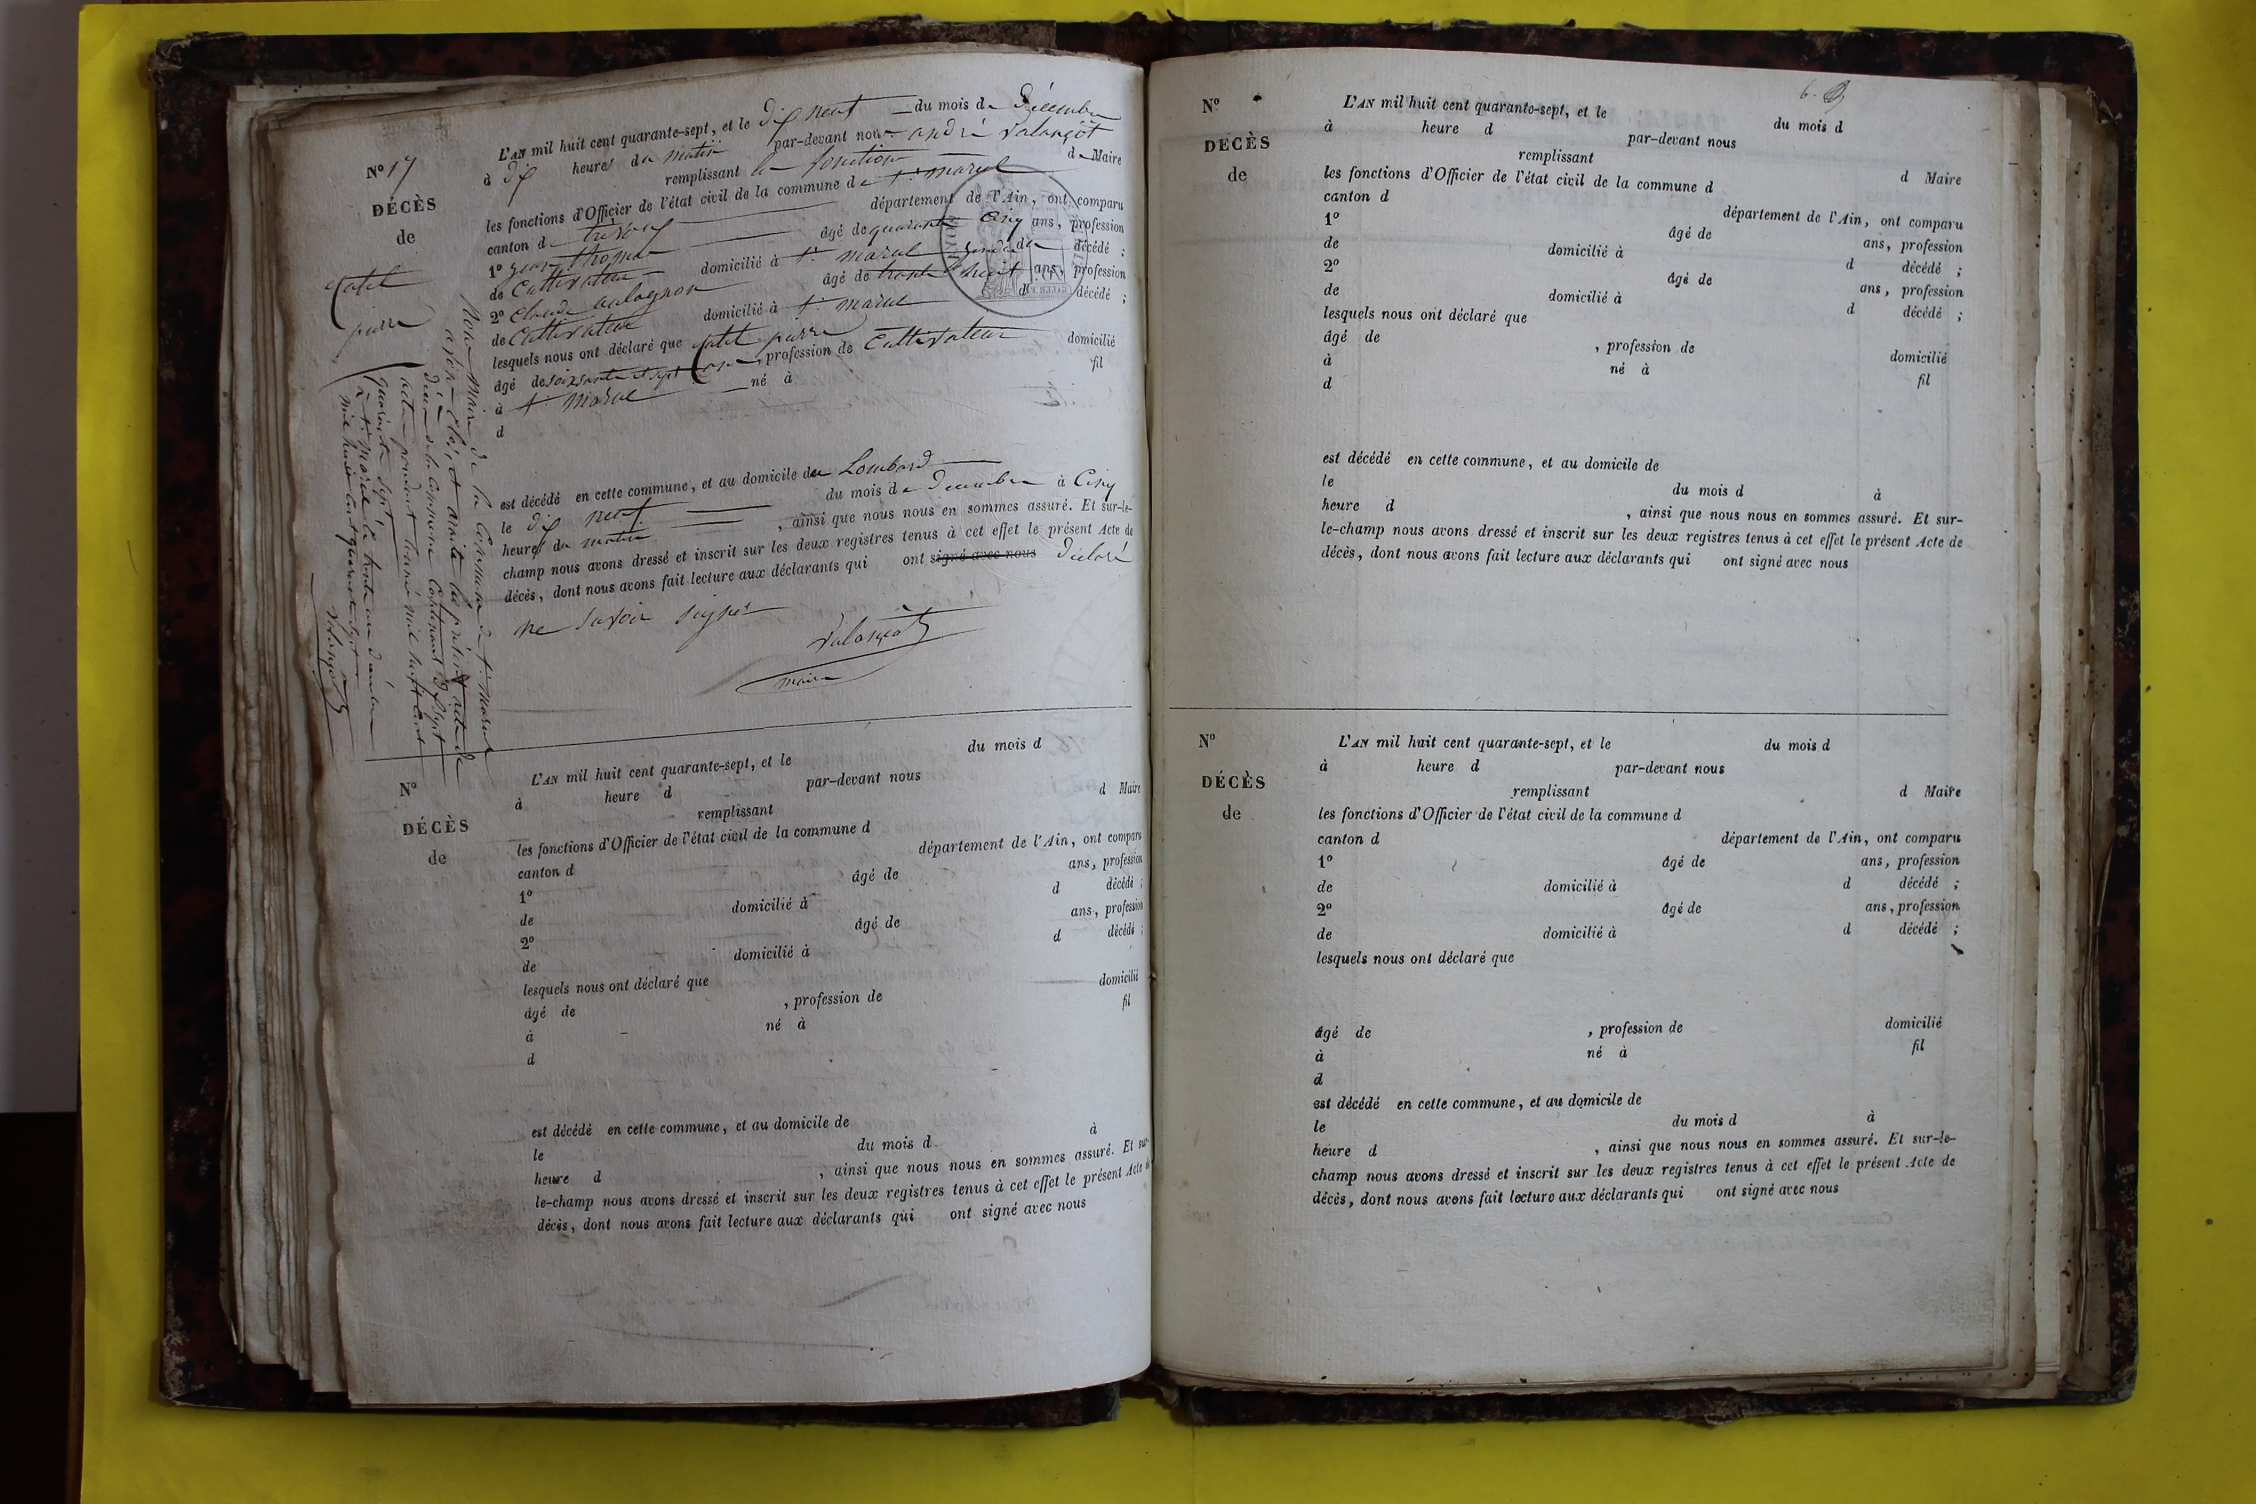 N° 17
DÉCÈS
de
Catel
pierre
L'AN mil huit cent quarante-sept, et le dix neuf du mois de Décembre
à dix heures du matin par-devant nous andré Valançot
remplissant les fonctions de Maire
les fonctions d'Officier de l'état civil de la commune de St. marcel
canton de trévoux département de l'Ain, ont comparu
1° jean thomas âgé de quarante cinq ans, profession
de Cultivateur domicilié à St. marcel gendre du décédé ;
2° Claude âgé de trente huit ans, profession
de Cultivateur domicilié à St. marcel d décédé ;
lesquels nous ont déclaré que Catel pierre
âgé de soixante et sept ans, profession de Cultivateur domicilié
à St. marcel né à fil
d
est décédé en cette commune, et au domicile du Lombard
le dix neuf du mois de Decembre à Cinq
heures du matin, ainsi que nous nous en sommes assuré. Et sur-le-
champ nous avons dressé et inscrit sur les deux registres tenus à cet effet le présent Acte de
décès, dont nous avons fait lecture aux déclarants qui ont signé avec nous déclaré
ne savoir signer
Valançot
maire
Nous Maire de la Commune de St. Marcel
avons Clos et arrêté les présent
de la Commune Contenant dix sept
actes pendant l'année mil huit cent
quarante sept
à St. Marcel le trente un décembre
mil huit cent quarante sept
Valançot
N°
DÉCÈS
de
L'AN mil huit cent quarante-sept, et le du mois d
à heure d par-devant nous
remplissant d Maire
les fonctions d'Officier de l'état civil de la commune d
canton d département de l'Ain, ont comparu
1° âgé de ans, profession
de domicilié à d décédé ;
2° âgé de ans, profession
de domicilié à d décédé ;
lesquels nous ont déclaré que
âgé de , profession de domicilié
à né à fil
d
est décédé en cette commune, et au domicile de
le du mois d à
heure d , ainsi que nous nous en sommes assuré. Et sur-
le-champ nous avons dressé et inscrit sur les deux registres tenus à cet effet le présent Acte de
décès, dont nous avons fait lecture aux déclarants qui ont signé avec nous
6.
N°
DÉCÈS
de
L'AN mil huit cent quarante-sept, et le du mois d
à heure d par-devant nous
remplissant d Maire
les fonctions d'Officier de l'état civil de la commune d
canton d département de l'Ain, ont comparu
1° âgé de ans, profession
de domicilié à d décédé ;
2° âgé de ans, profession
de domicilié à d décédé ;
lesquels nous ont déclaré que
âgé de , profession de domicilié
à né à fil
d
est décédé en cette commune, et au domicile de
le du mois d à
heure d , ainsi que nous nous en sommes assuré. Et sur-
le-champ nous avons dressé et inscrit sur les deux registres tenus à cet effet le présent Acte de
décès, dont nous avons fait lecture aux déclarants qui ont signé avec nous
N°
DÉCÈS
de
L'AN mil huit cent quarante-sept, et le du mois d
à heure d par-devant nous
remplissant d Maire
les fonctions d'Officier de l'état civil de la commune d
canton d département de l'Ain, ont comparu
1° âgé de ans, profession
de domicilié à d décédé ;
2° âgé de ans, profession
de domicilié à d décédé ;
lesquels nous ont déclaré que
âgé de , profession de domicilié
à né à fil
d
est décédé en cette commune, et au domicile de
le du mois d à
heure d , ainsi que nous nous en sommes assuré. Et sur-le-
champ nous avons dressé et inscrit sur les deux registres tenus à cet effet le présent Acte de
décès, dont nous avons fait lecture aux déclarants qui ont signé avec nous